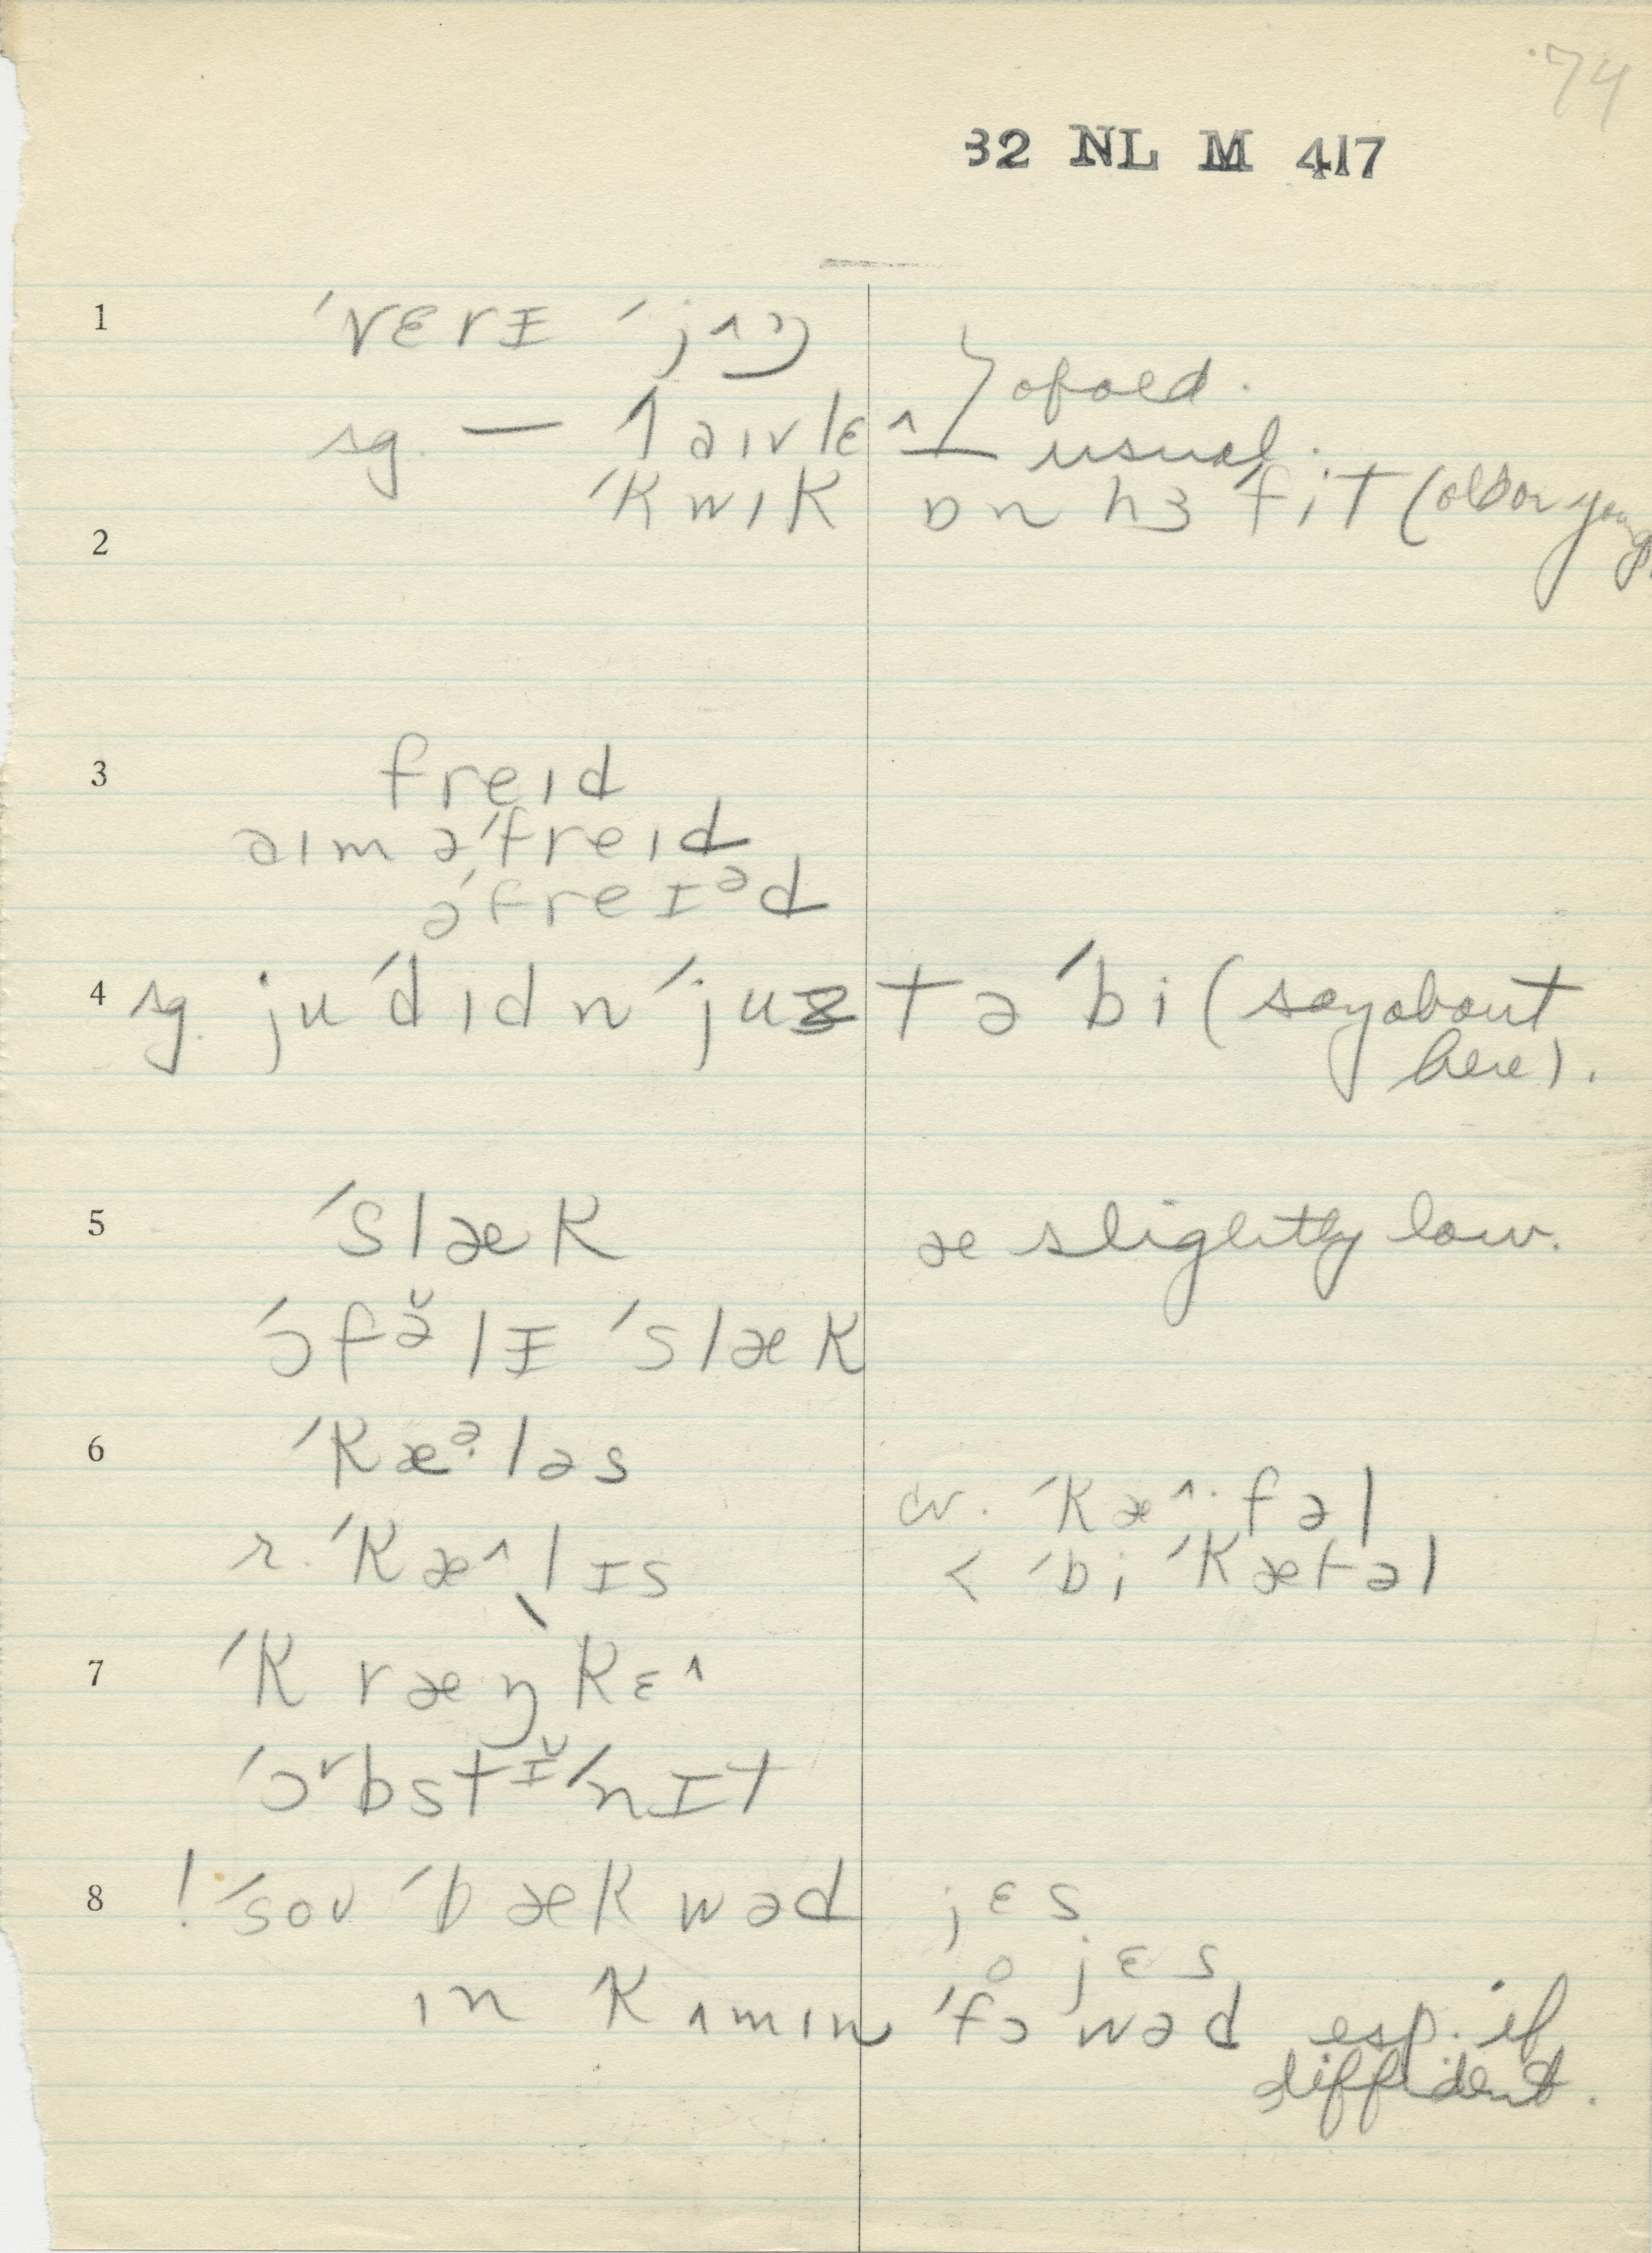 74
32 NL M 417
1 ˈvɛrɪ ˈjʌŋ
} of old.
sg. — ˈlaɪvlɛ^ usual.
ˈkwɪk ɒn hɜ ˈfit (old or young
2
3 freɪd
aɪm əˈfreɪd
əˈfreɪᵊd
4 sg. ju ˈdɪdn ˈjuztə ˈbi (say about
here).
5 ˈslæk æ slightly low.
ˈɔfə̆lɪ ˈslæk
6 ˈkæᵊ·ləs
cv. ˈkæ^·fəl
r. ˈkæ^lɪs
< ˈbi ˈkætəl
7 ˈkræŋkɛ^
ˈɔᵛbstɪ̆ˈnɪt
8 ! ˈsoʊ ˈbækwəd jɛs
o jɛs
ɪn kʌmɪn ˈfɔwəd esp. if
diffident.